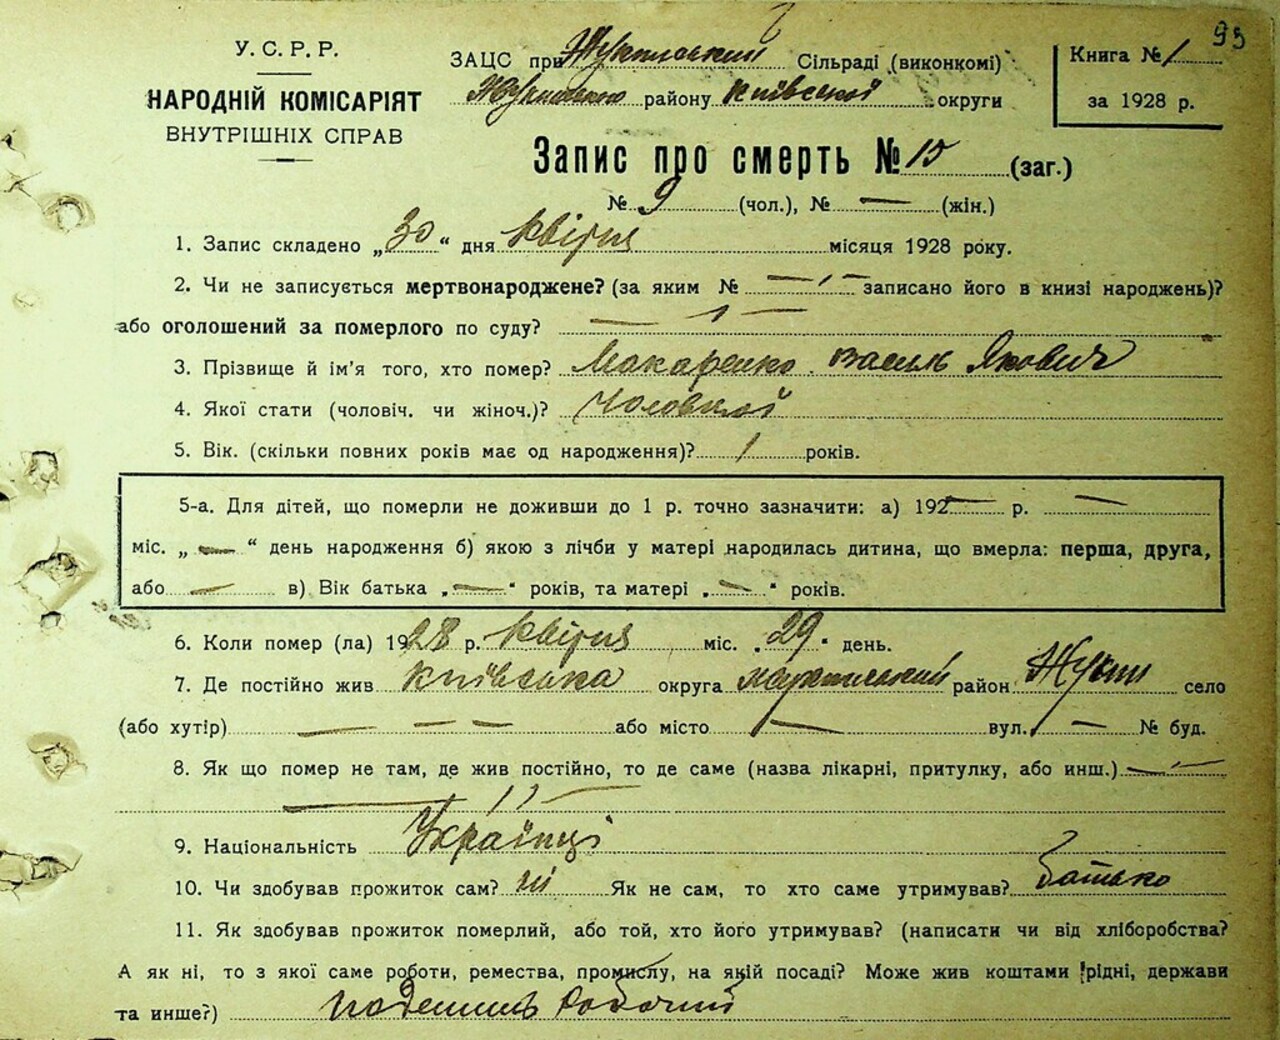 95
У. С. Р. Р.
НАРОДНІЙ КОМІСАРІЯТ
ВНУТРІШНІХ СПРАВ
ЗАЦС при Сільраді (виконкомі)
району Київської округи
Книга № 1
за 1928 р.
Запис про смерть № 15 (заг.)
№ 9 (чол.), № — (жін.)
1. Запис складено „30“ дня квітня місяця 1928 року.
2. Чи не записується мертвонароджене? (за яким № — записано його в книзі народжень)?
або оголошений за померлого по суду? —
3. Прізвище й ім'я того, хто помер? Макаренко Василь Якович
4. Якої стати (чоловіч. чи жіноч.)? Чоловічої
5. Вік. (скільки повних років має од народження)? 1 років.
5-а. Для дітей, що померли не доживши до 1 р. точно зазначити: а) 192— р. —
міс. „—“ день народження б) якою з лічби у матері народилась дитина, що вмерла: перша, друга,
або — в) Вік батька „—“ років, та матері „—“ років.
6. Коли помер (ла) 1928 р. квітня міс. „29“ день.
7. Де постійно жив Київська округа район Жукин село
(або хутір) — — — або місто — вул. — № буд.
8. Як що помер не там, де жив постійно, то де саме (назва лікарні, притулку, або инш.) —
—
9. Національність Українці
10. Чи здобував прожиток сам? ні Як не сам, то хто саме утримував? Батько
11. Як здобував прожиток померлий, або той, хто його утримував? (написати чи від хліборобства?
А як ні, то з якої саме роботи, ремества, промислу, на якій посаді? Може жив коштами рідні, держави
та инше?) робочий